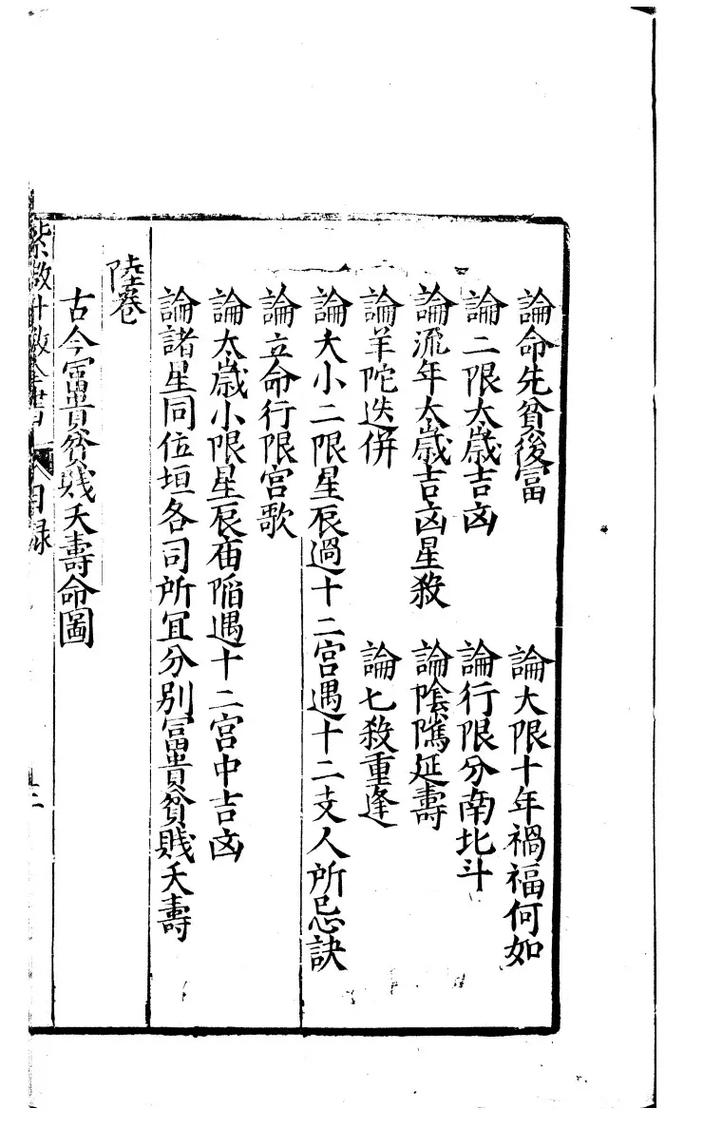 論命先貧後富　論大限十年禍福何如
論二限太歲吉凶　論行限分南北斗
論流年太歲吉凶星殺　論陰隲延壽
論羊陀迭併　論七殺重逢
論大小二限星辰過十二宮遇十二支人所忌訣
論立命行限宮歌
論太歲小限星辰庙陷遇十二宮中吉凶
論諸星同位垣各司所宜分別冨貴貧賤夭壽
陸卷
古今冨貴貧賤夭壽命圖
紫微斗数全書　目録　二